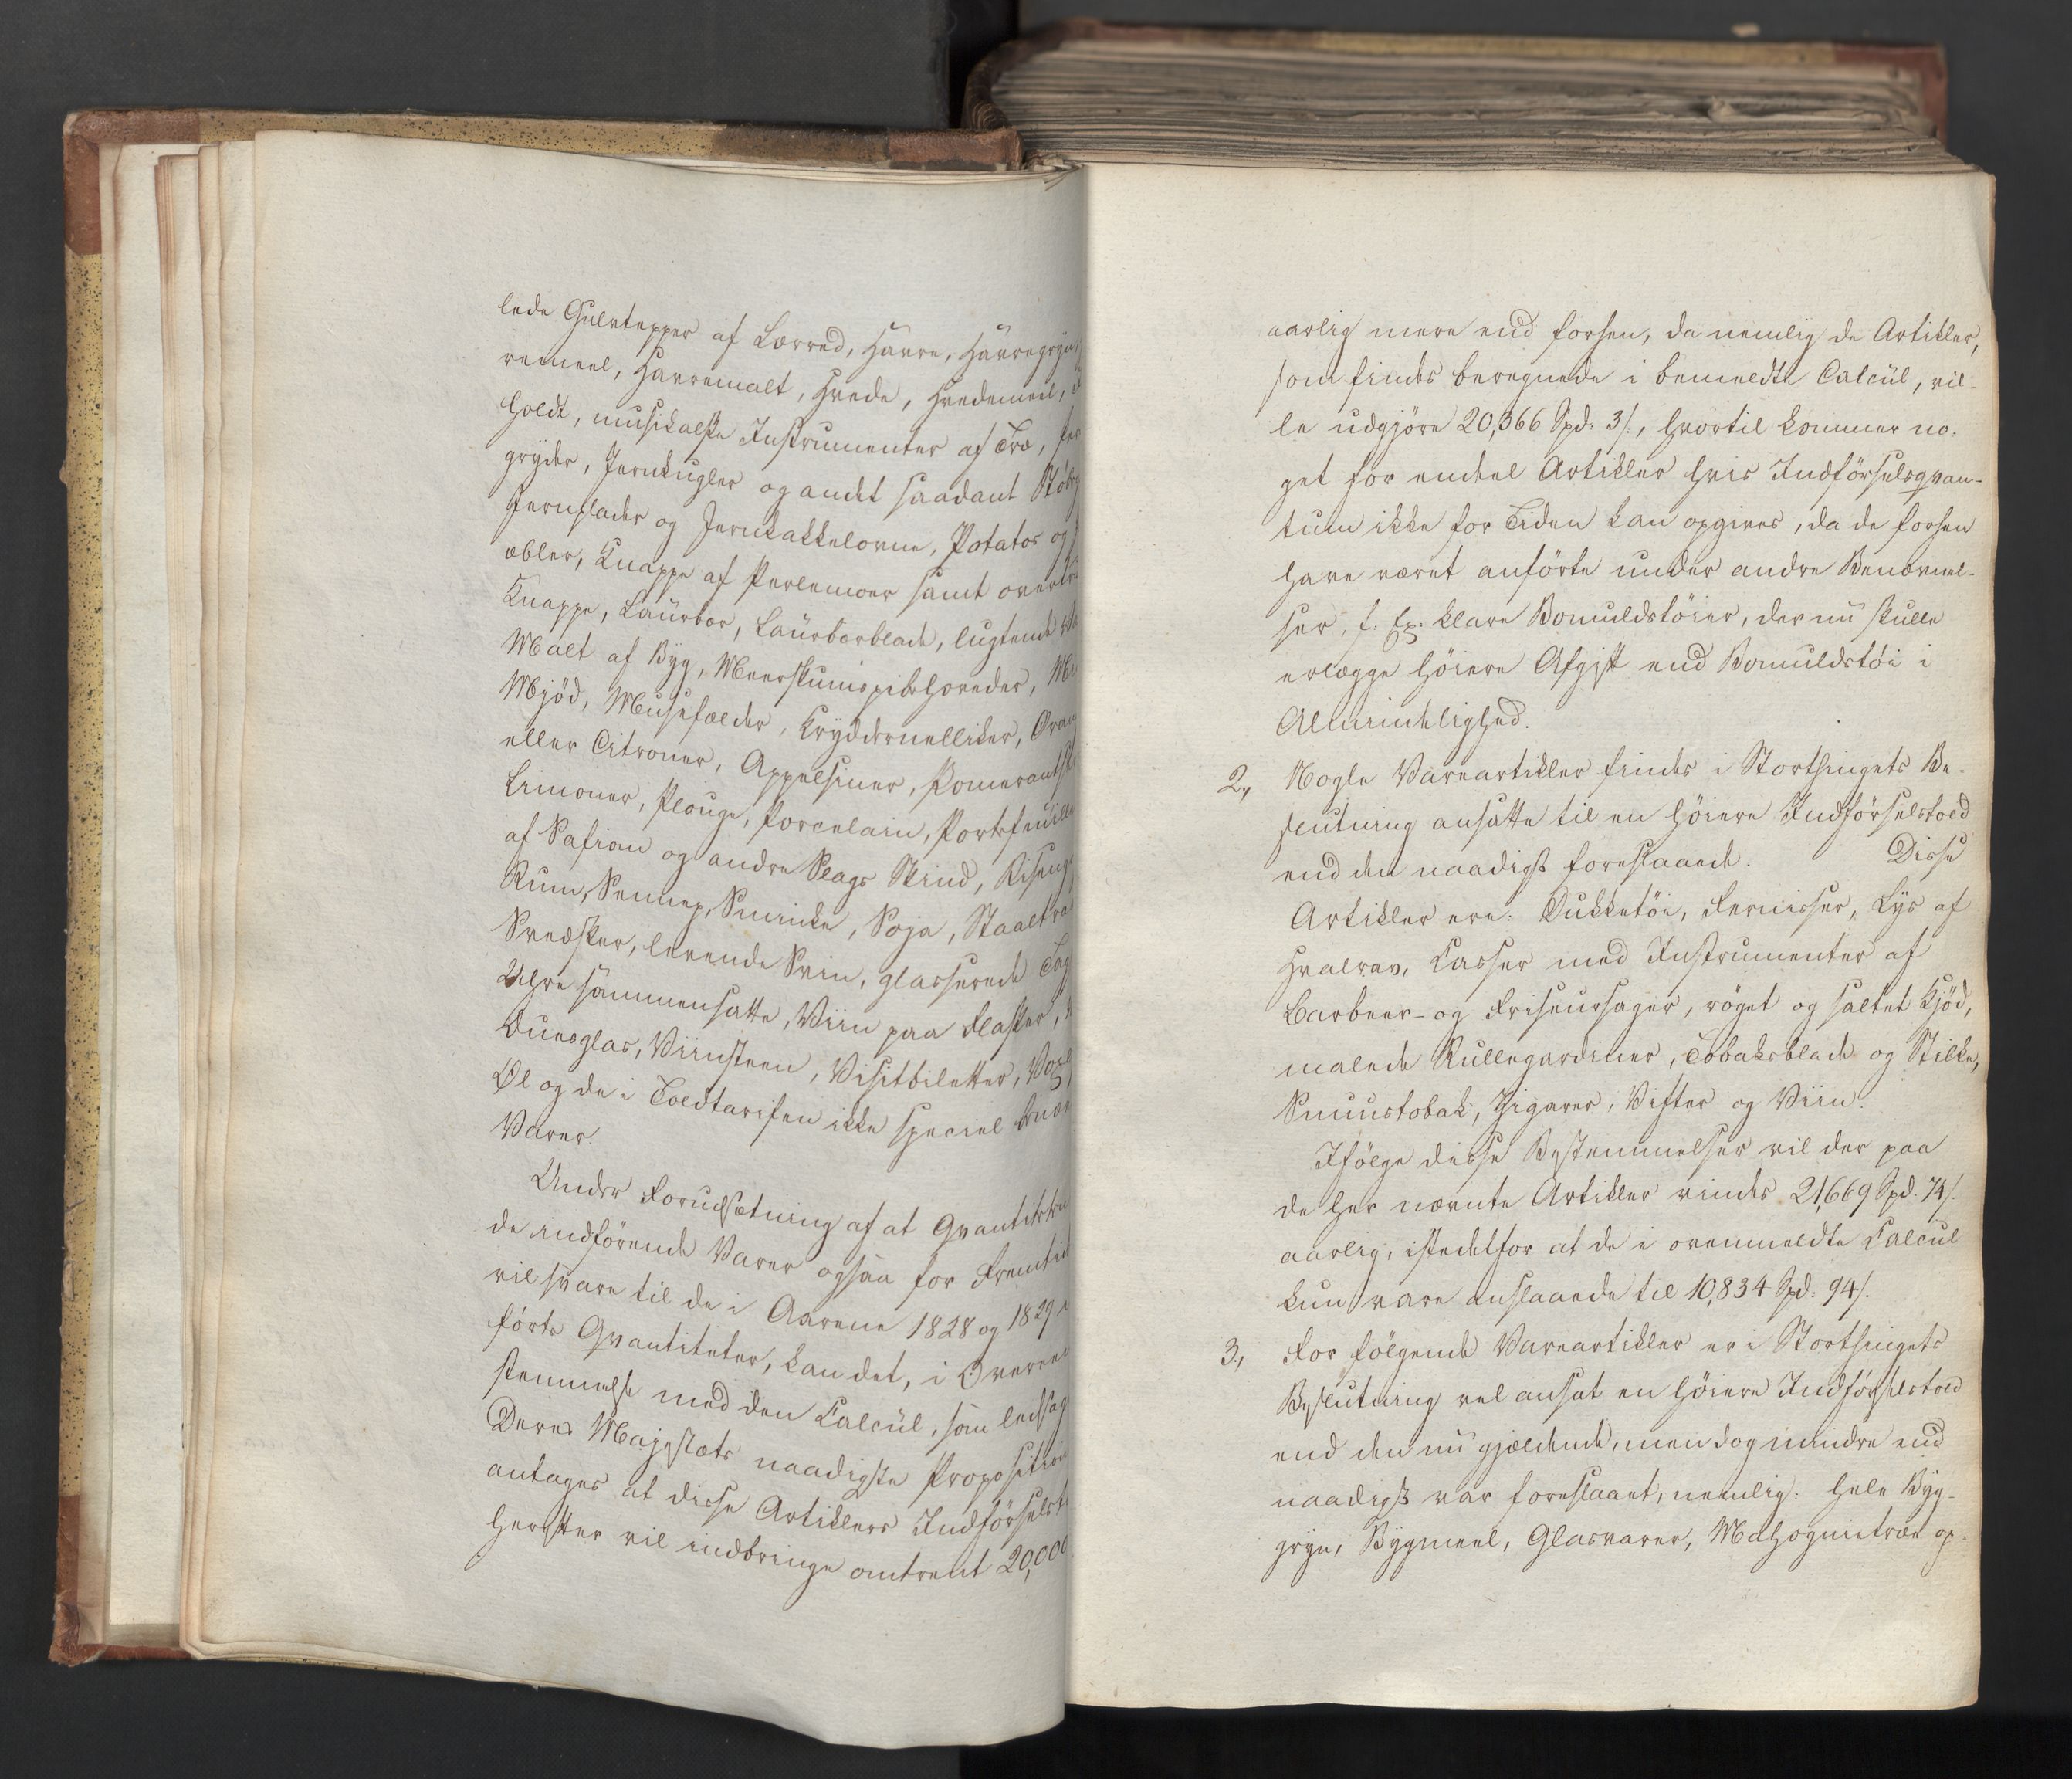 lede Gulvtepper af Lærred, Havre, Havregryn,
remeel, Havremalt, Hvede, Hvedemeel,
holdt, musikalske Instrumenter af Træ, Jer
gryder, Jernkugler og andet saadant Støbeg
Jernplader og Jernkakkelovne, Potatos og
æbler, Knappe af Perlemoer samt overtru
Knappe, Laürbær, Laürbærblade, lugtende
Malt af Byg, Meerskumspibehoveder, Me
Mjöd, Musefælder, Kryddernelliker, Oran
eller Citroner, Appelsiner, Pomerantsk
Limoner, Plouge, Porcelain, Portefeuille
af Safian og andre Slags Skind, Risengr
Rum, Sennep, Sminke, Soja, Staaltra
Svedsker, levende Sviin, glasserede Tag
Uhre sammensatte, Viin paa Flasker,
duesglas, Viinsteen, Visitbiletter, Vogn
Øl og de i Toldtarifen ikke speciel benæv
Varer.
Under Forudsætning af at Qvantitete
de indförende Varer ogsaa for Fremtid
vil svare til de i Aarene 1828 og 1829
förte Qvantiteter, kan det, i Overeen
stemmelse med den Calcül, som ledsag
Deres Majestæts naadigste Proposition
antages at disse Artiklers Indförselsto
herefter vil indbringe omtrent 20,000
aarlig mere end forhen, da nemlig de Artikler,
som findes beregnede i bemeldte Calcül, vil-
le udgjöre 20,366 Spd. 3 s., hvortil kommer no-
get for endeel Artikler hvis Indförselsqvan-
tum ikke for Tiden kan opgives, da de forhen
have været anförte under andre Benævnel-
ser, f. Ex. klare Bomuldstöier, der nu skulle
erlægge höiere Afgift end Bomuldstöi i
Almindelighed.
2., Nogle Vareartikler findes i Storthingets Be-
slutning ansatte til en höiere Indförselstold
end den naadigst foreslaaede. Disse
Artikler ere: Dukketöie, Fernisser, Lys af
Hvalrav, Casser med Instrumenter af
Barbeer- og Friseursager, röget og saltet Kjöd,
malede Rullegardiner, Tobaksblade og Stilke,
Snuustobak, Zigarer, Vifter og Viin.
Ifölge disse Bestemmelser vil der paa
de her nævnte Artikler vindes 21,669 Spd. 74 s.
aarlig, istedetfor at de i ovenmeldte Calcul
kun vare anslaaede til 10,834 Spd. 94 s.
3., For fölgende Vareartikler er i Storthingets
Beslutning vel ansat en höiere Indförselstold
end den nu gjældende, men dog mindre end
naadigst var foreslaaet, nemlig: hele Byg-
gryn, Bygmeel, Glasvarer, Mahognietræe op-